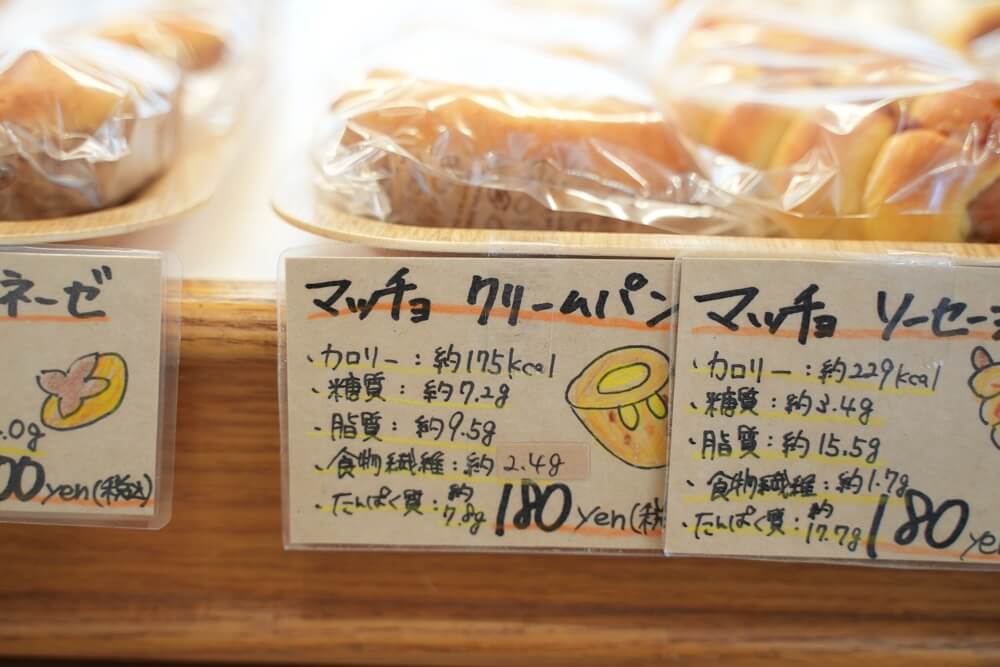 ネーゼ
.0g
00yen(税込)
マッチョ クリームパン
・カロリー：約175kcal
・糖質：約7.2g
・脂質：約9.5g
・食物繊維：約2.4g
・たんぱく質：約7.8g
180yen(税
マッチョ ソーセージ
・カロリー：約229kcal
・糖質：約3.4g
・脂質：約15.5g
・食物繊維：約1.7g
・たんぱく質：約17.7g
180ye